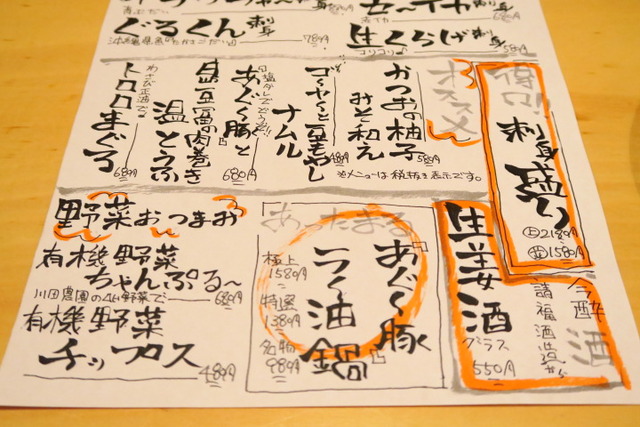 ぐるくん刺身
789円
生くらげ刺身
コリコリ
589円
得
刺身盛り
上2189円
1580円
オススメ
かつおの柚子
みそ和え
589円
※メニューは税抜き表示です。
ゴーヤーと豆もやし
ナムル
489円
あぐー豚と
島豆富の肉巻き
680円
温とうふ
わさび正油で
トロロまぐろ
689円
野菜おつまみ
有機野菜
ちゃんぷる〜
川田農園の山野菜で
680円
有機野菜
チップス
489円
あったまる
あぐー豚
らー油鍋
極上
1580円
特選
1380円
名物
989円
生姜酒
グラス
550円
酒
諸福酒造が